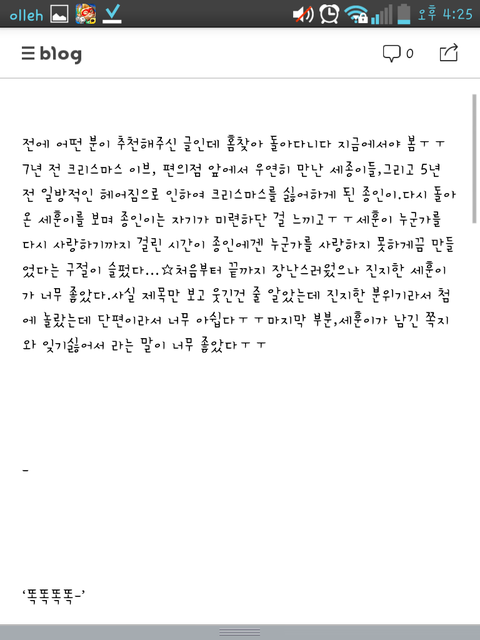 olleh 오후 4:25
blog 0
전에 어떤 분이 추천해주신 글인데 홈찾아 돌아다니다 지금에서야 봄ㅜㅜ
7년 전 크리스마스 이브, 편의점 앞에서 우연히 만난 세종이들,그리고 5년
전 일방적인 헤어짐으로 인하여 크리스마스를 싫어하게 된 종인이.다시 돌아
온 세훈이를 보며 종인이는 자기가 미련하단 걸 느끼고ㅜㅜ세훈이 누군가를
다시 사랑하기까지 걸린 시간이 종인에겐 누군가를 사랑하지 못하게끔 만들
었다는 구절이 슬펐다...☆처음부터 끝까지 장난스러웠으나 진지한 세훈이
가 너무 좋았다.사실 제목만 보고 웃긴건 줄 알았는데 진지한 분위기라서 첨
에 놀랐는데 단편이라서 너무 아쉽다ㅜㅜ마지막 부분,세훈이가 남긴 쪽지
와 잊기싫어서 라는 말이 너무 좋았다ㅜㅜ
-
‘똑똑똑똑-’